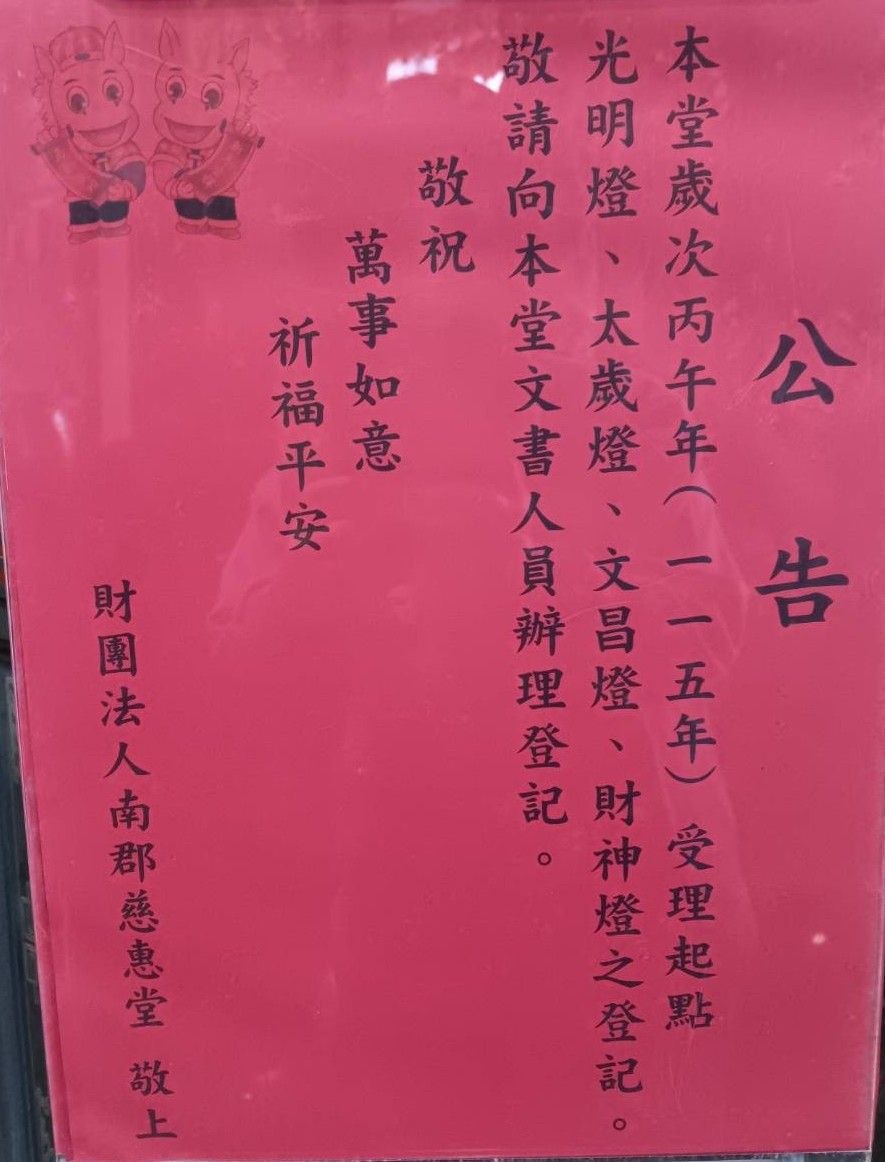 公告
本堂歲次丙午年(一一五年)受理起點
光明燈、太歲燈、文昌燈、財神燈之登記。
敬請向本堂文書人員辦理登記。
敬祝
萬事如意
祈福平安
財團法人南郡慈惠堂 敬上